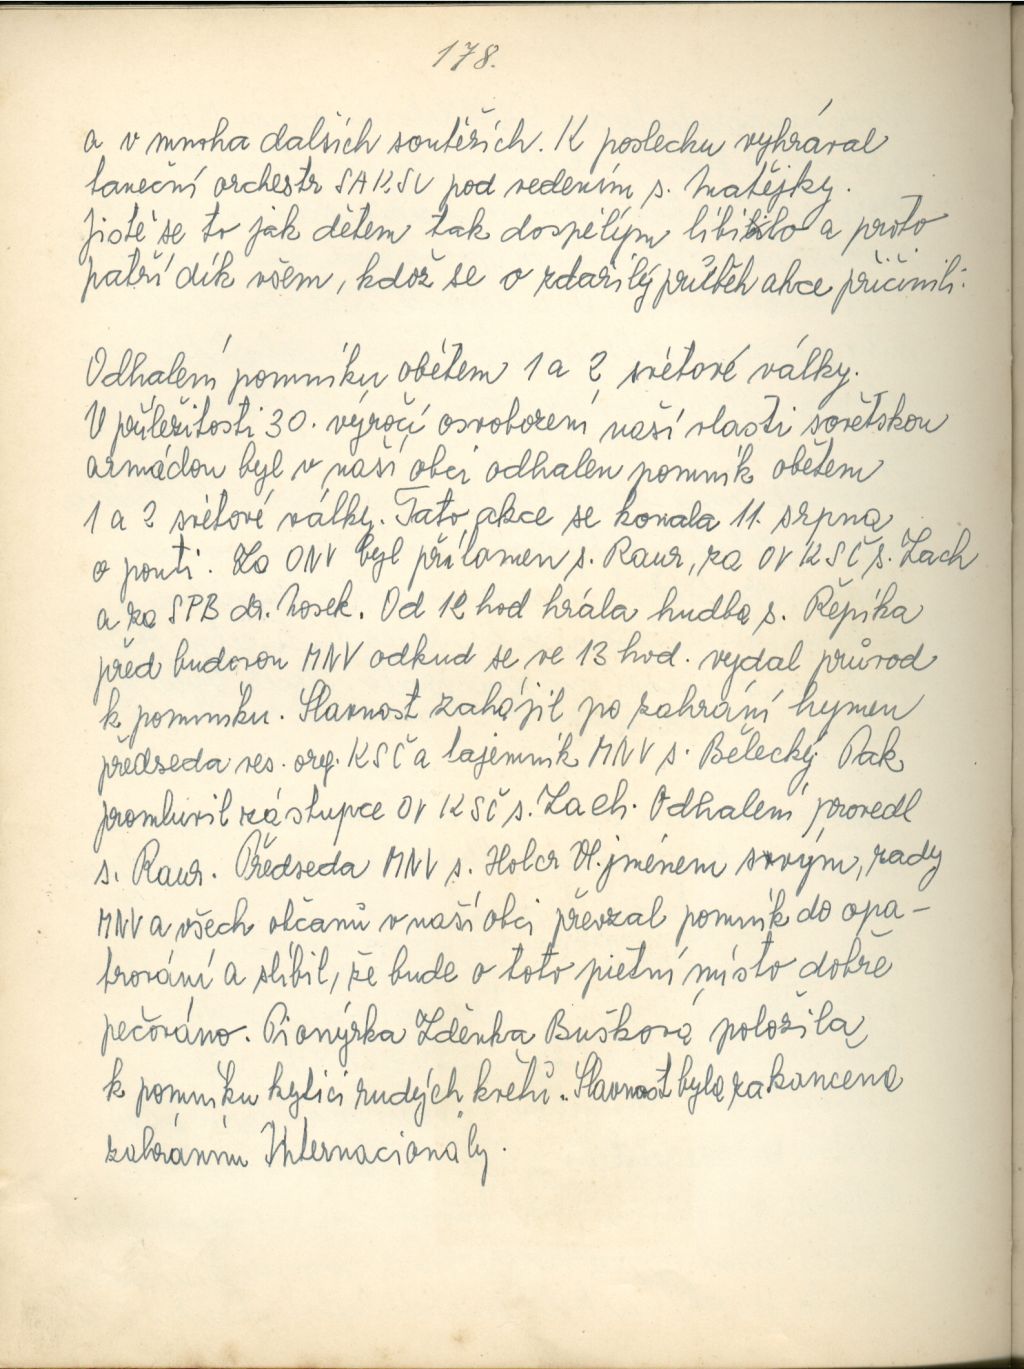 178.
a v mnoha dalších soutěžích. K poslechu vyhrával
taneční orchestr SAKSU pod vedením s. Matějky.
Jistě se to jak dětem tak dospělým líbilo a proto
patří dík všem, kdož se o zdařilý průběh akce přičinili.
Odhalení pomníku obětem 1 a 2 světové války.
U příležitosti 30. výročí osvobození naší vlasti sovětskou
armádou byl v naší obci odhalen pomník obětem
1 a 2 světové války. Tato akce se konala 11. srpna
o pouti. Za ONV byl přítomen s. Raur, za OV KSČ s. Zach
a za SPB dr. Nosek. Od 12 hod hrála hudba s. Řepíka
před budovou MNV odkud se ve 13 hod. vydal průvod
k pomníku. Slavnost zahájil po zahrání hymen
předseda ves. org. KSČ a tajemník MNV s. Bělecký Pak
promluvil zástupce OV KSČ s. Zach. Odhalení provedl
s. Raur. Předseda MNV s. Holcr Vl. jménem svým, rady
MNV a všech občanů v naší obci převzal pomník do opa-
trování a slíbil, že bude o toto pietní místo dobře
pečováno. Pionýrka Zděnka Bušková položila
k pomníku kytici rudých květů. Slavnost byla zakončena
zahráním Internacionály.